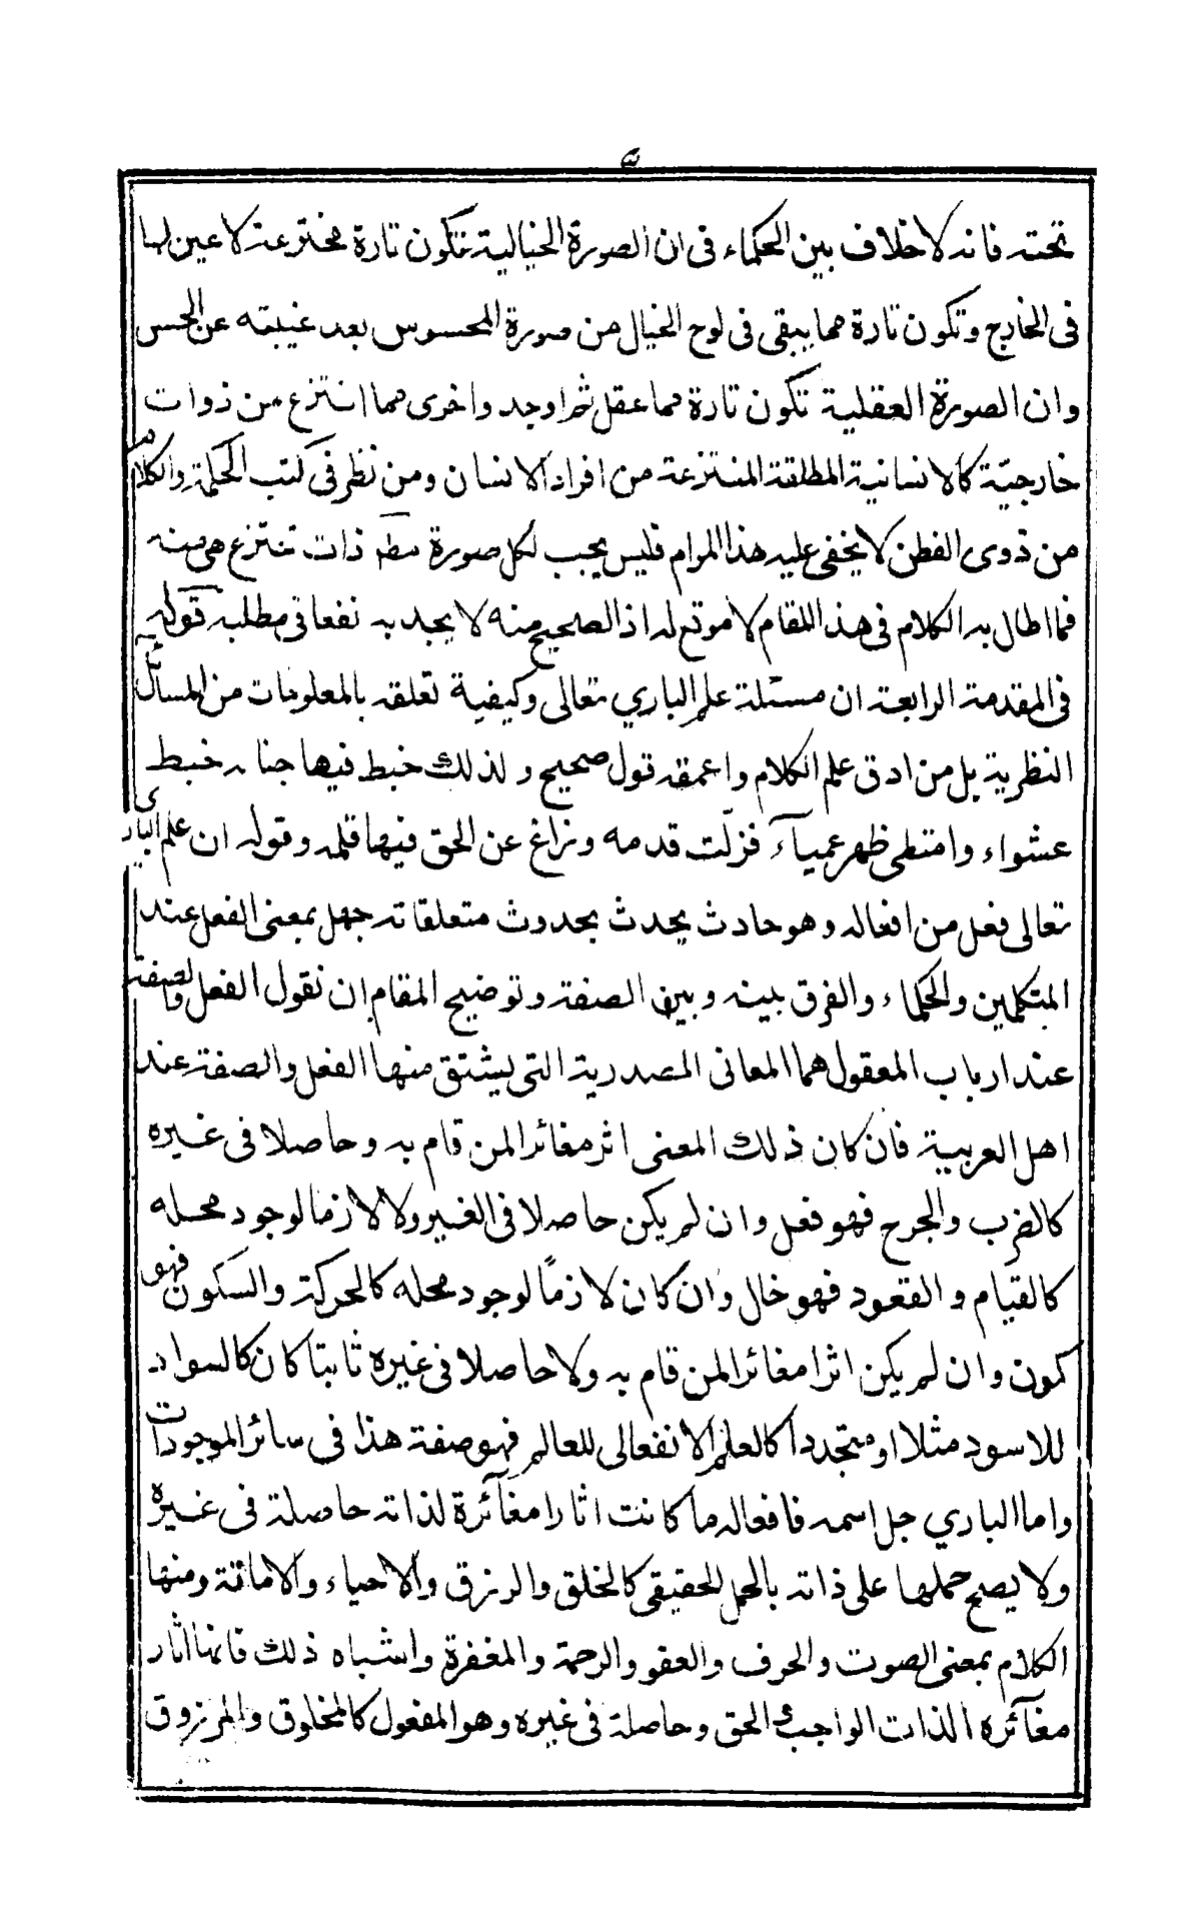 تحته فانه لا خلاف بين الحكماء فى ان الصورة الخيالية تكون تارة مخترعة لا عين لها
فى الخارج وتكون تارة مما يبقى فى لوح الخيال من صورة المحسوس بعد غيبته عن الحس
وان الصورة العقلية تكون تارة مما عقل ثم اوجد واخرى مما انتزع من ذوات
خارجيّة كالانسانية المطلقة المنتزعة من افراد الانسان ومن نظر فى كتب الحكمة والكلام
من ذوى الفطن لا يخفى عليه هذا المرام فليس يجب لكل صورة ذات تنتزع هى منه
فما اطال به الكلام فى هذا المقام لا موقع له اذ الصحيح منه لا يجد به نفعا فى مطلبه قوله
فى المقدمة الرابعة ان مسئلة علم الباري تعالى وكيفية تعلقه بالمعلومات من المسائل
النظرية بل من ادق علم الكلام واعمقه قول صحيح ولذلك خبط فيها جنابه خبط
عشواء وامتطى ظهر عميآء فزلّت قدمه وزاغ عن الحق فيها قلمه وقوله ان علم الباري
تعالى فعل من افعاله وهو حادث يحدث بحدوث متعلقاته جهل بمعنى الفعل عند
المتكلمين والحكماء والفرق بينه وبين الصفة وتوضيح المقام ان نقول الفعل والصفة
عند ارباب المعقول هما المعانى المصدرية التى يشتق منها الفعل والصفة عند
اهل العربية فان كان ذلك المعنى اثر مغائرا لمن قام به وحاصلا فى غيره
كالضرب والجرح فهو فعل وان لم يكن حاصلا فى الغير ولا لازما لوجود محله
كالقيام والقعود فهو حال وان كان لازمًا لوجود محله كالحركة والسكون فهو
كون وان لم يكن اثرا مغائرا لمن قام به ولا حاصلا فى غيره ثابتا كان كالسواد
للاسود مثلا او متجددا كالعلم الانفعالى للعالم فهو صفة هذا فى سائر الموجودات
واما الباري جل اسمه فافعاله ما كانت اثارا مغآئرة لذاته حاصلة فى غيره
ولا يصح حملها على ذاته بالحمل الحقيقى كالخلق والرزق والاحياء والاماتة ومنها
الكلام بمعنى الصوت والحرف والعفو والرحمة والمغفرة واشباه ذلك فانها اثار
مغآئرة الذات الواجب الحق وحاصلة فى غيره وهو المفعول كالمخلوق والمرزوق